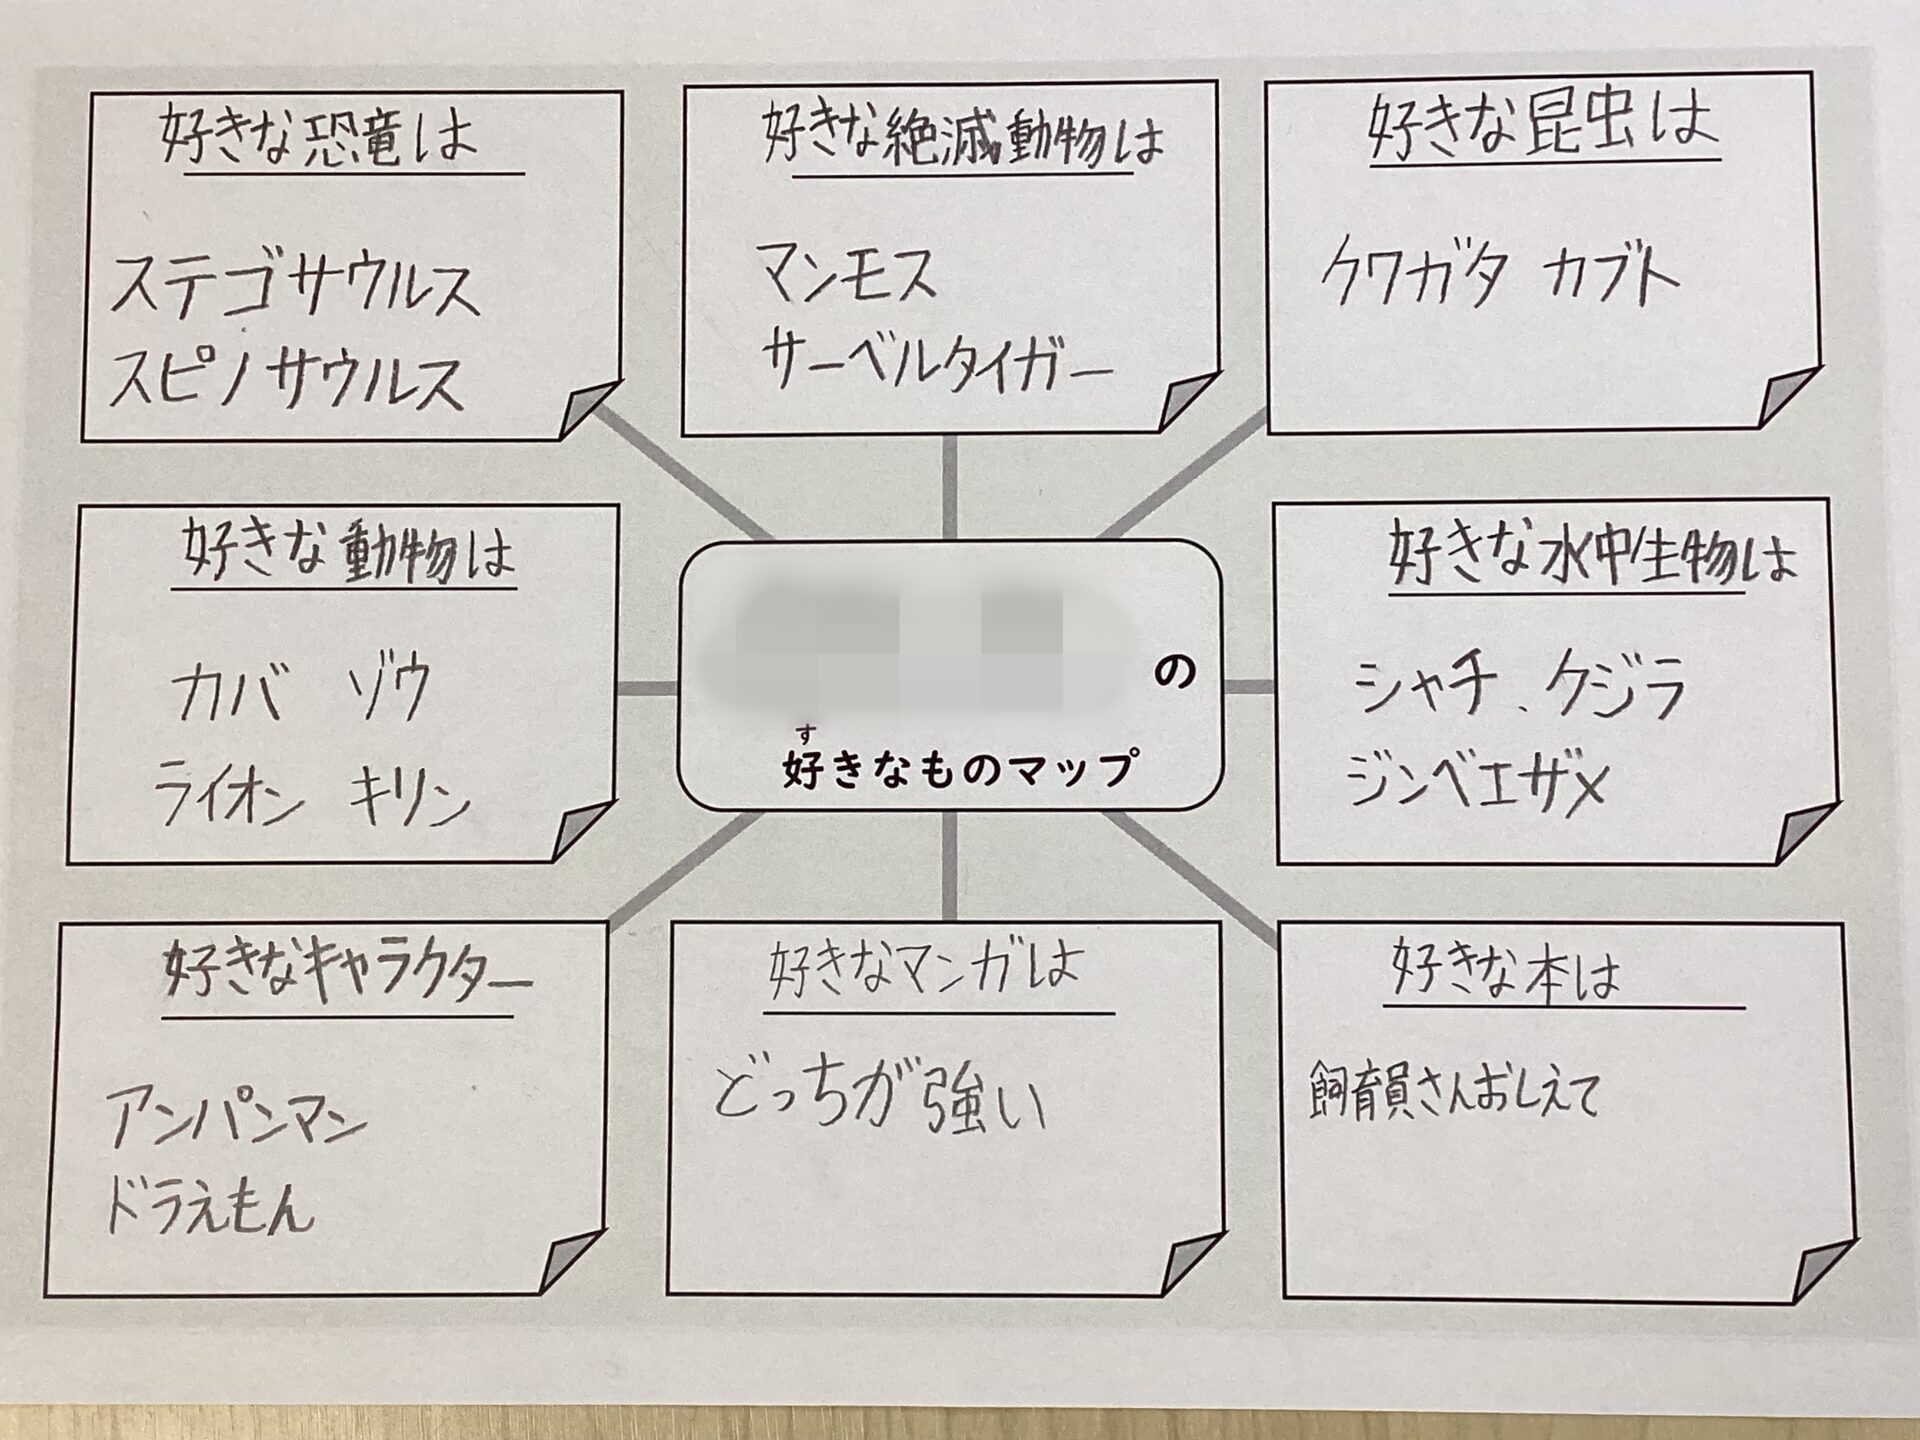 好きな恐竜は
ステゴサウルス
スピノサウルス
好きな絶滅動物は
マンモス
サーベルタイガー
好きな昆虫は
クワガタ カブト
好きな動物は
カバ ゾウ
ライオン キリン
の
す
好きなものマップ
好きな水中生物は
シャチ、クジラ
ジンベエザメ
好きなキャラクター
アンパンマン
ドラえもん
好きなマンガは
どっちが強い
好きな本は
飼育員さんおしえて